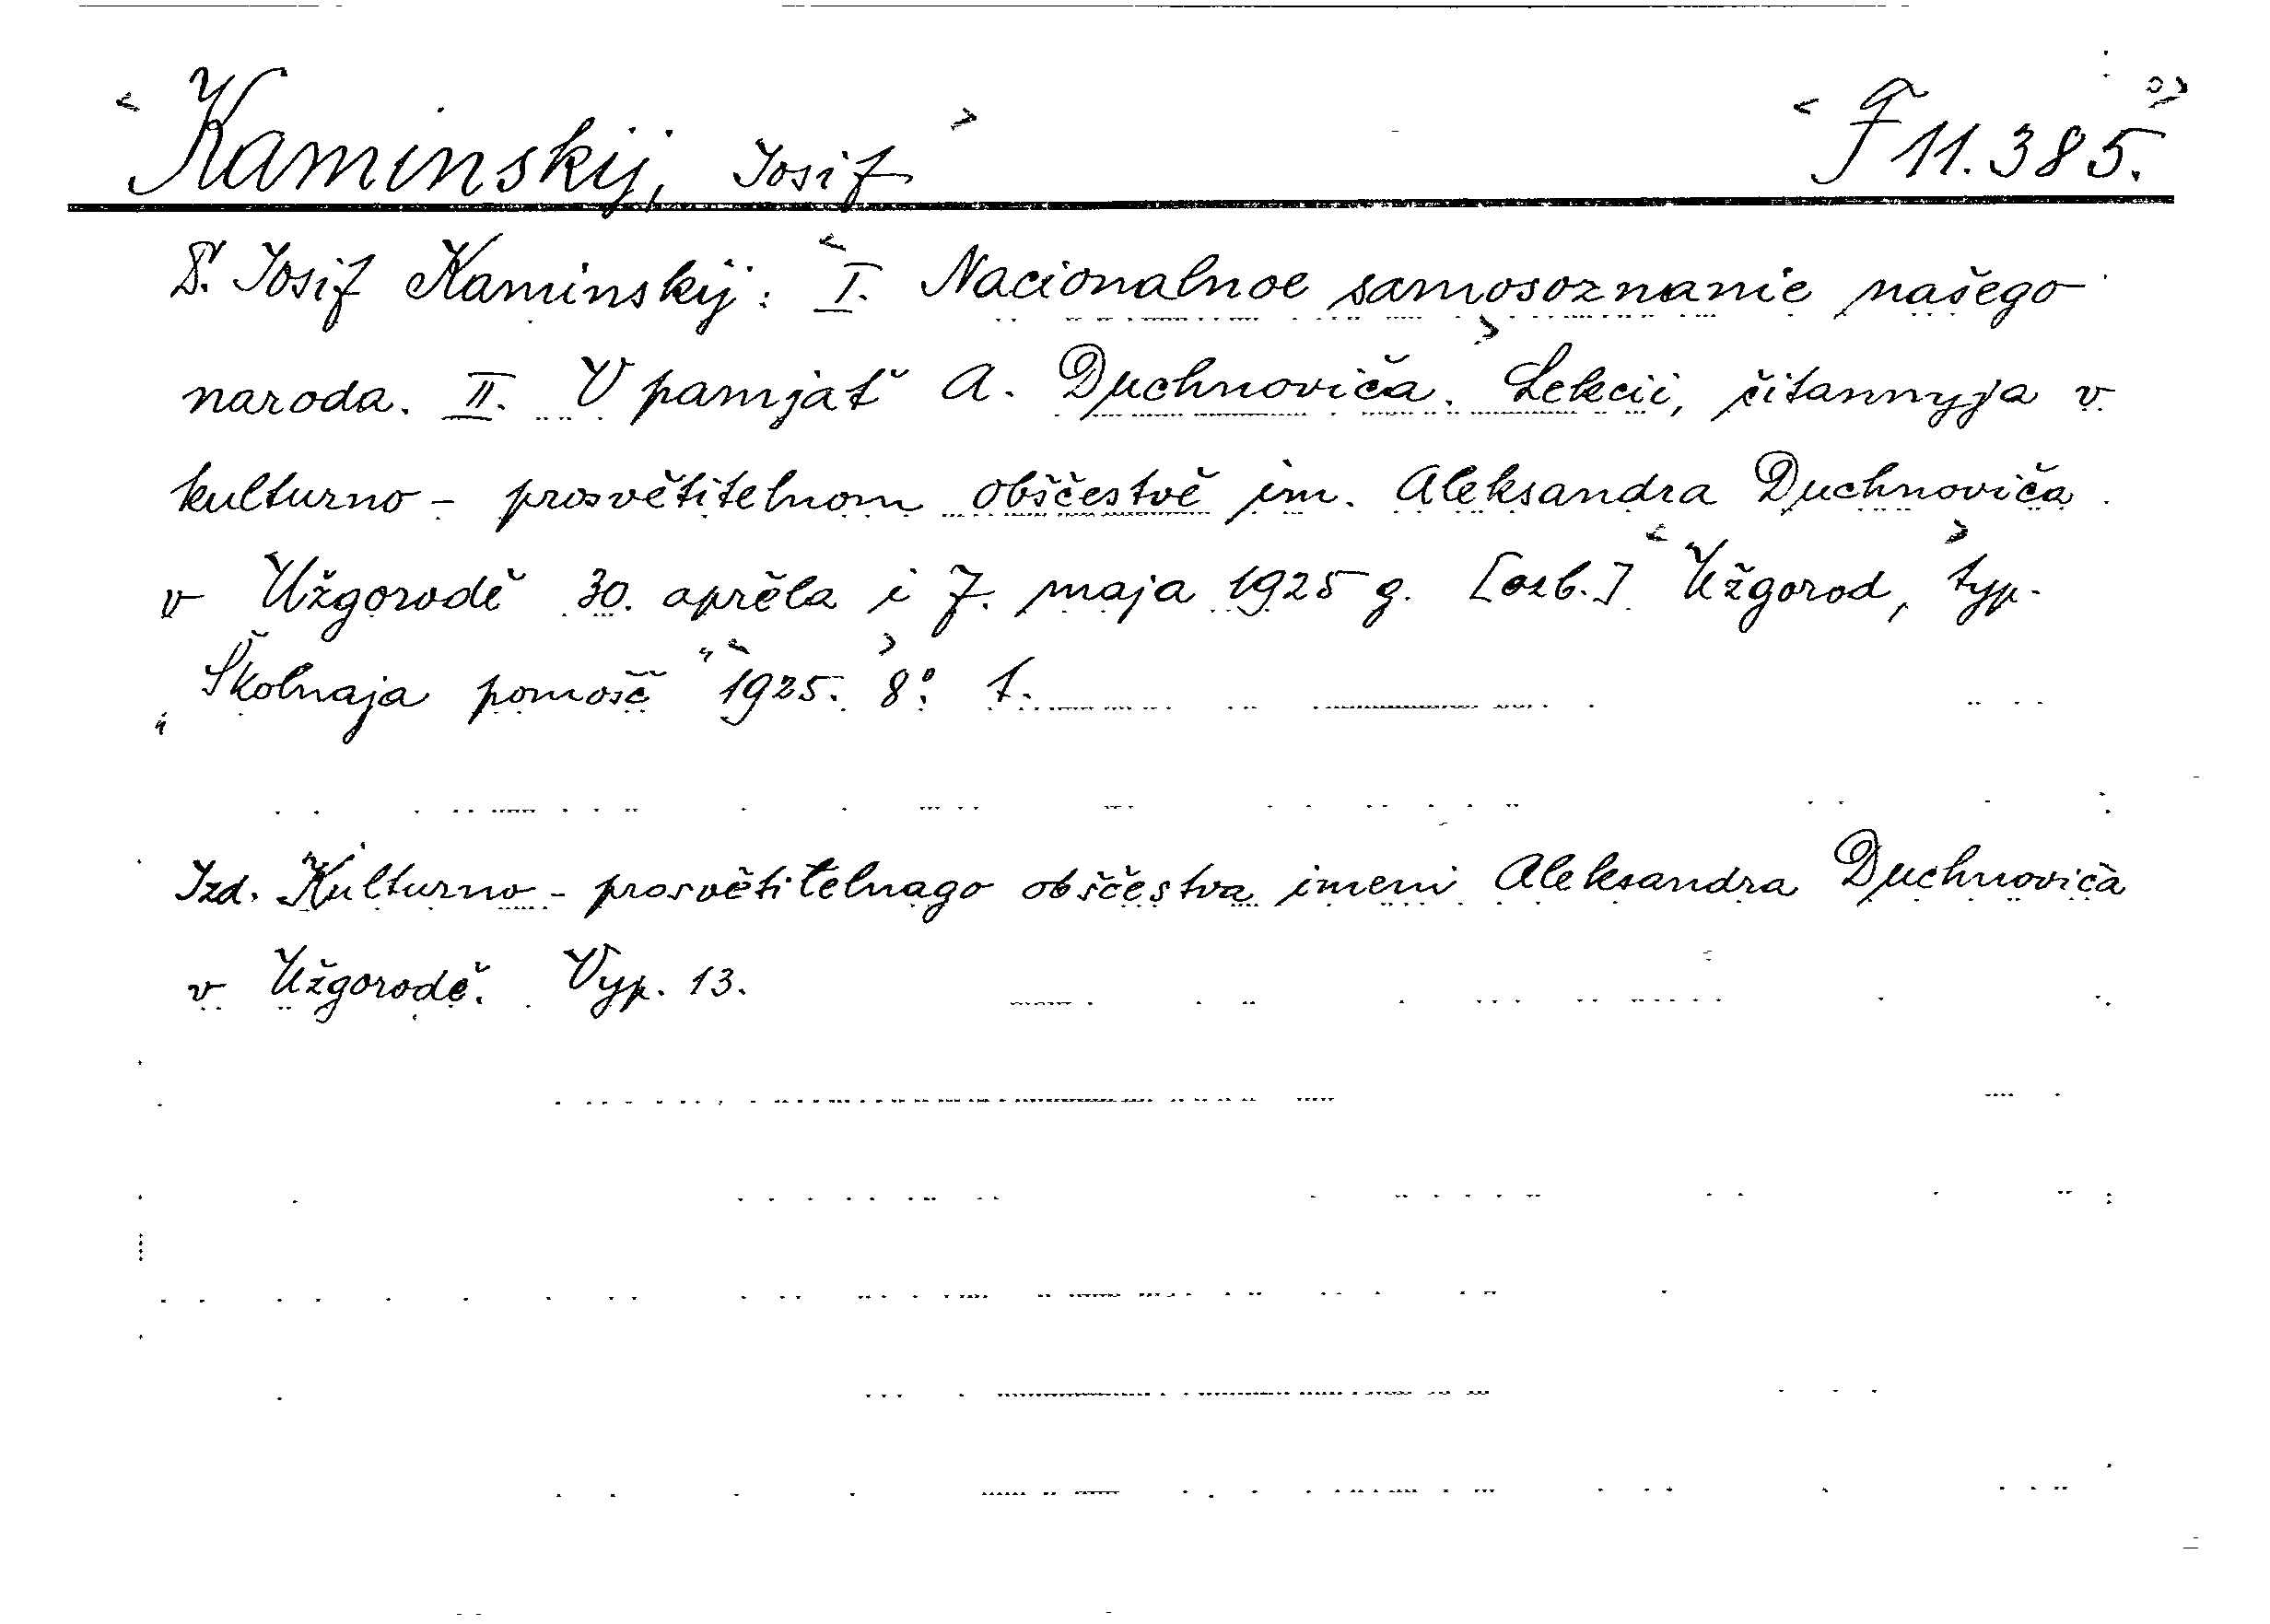 <Kaminskij, Iosif> <F 11.385.>
D͏r. Iosif Kaminskij: <I. Nacionalnoe samosoznanie našego
naroda. II. V pamjať A. Duchnoviča.> Lekcii, čitannyja v
kulturno-prosvětitelnom obščestvě im. Aleksandra Duchnoviča
v Užgorodě 30. aprěla i 7. maja 1925 g. [osb.] <Užgorod,> typ.
"Školnaja pomošč" <1925.> 8°. 1.
Izd. Kulturno-prosvětitelnago obščestva imeni Aleksandra Duchnoviča
v Užgorodě. Vyp. 13.